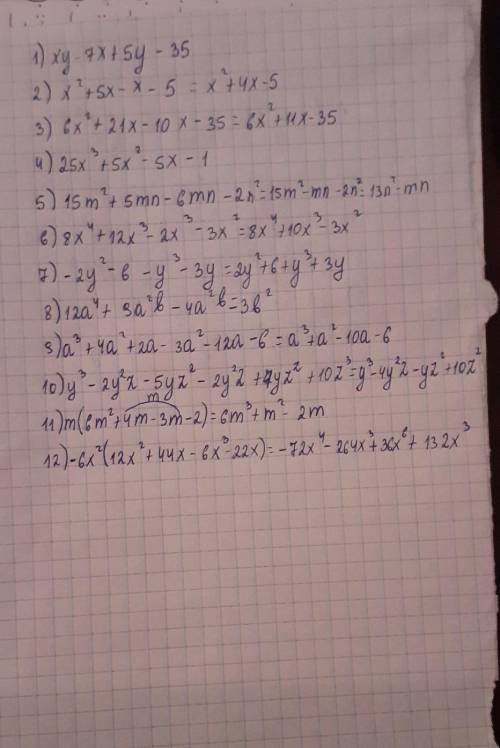 1) xy - 7x + 5y - 35
2) x² + 5x - x - 5 = x² + 4x - 5
3) 6x² + 21x - 10x - 35 = 6x² + 11x - 35
4) 25x³ + 5x² - 5x - 1
5) 15m² + 5mn - 6mn - 2n² = 15m² - mn - 2n² = 13n² - mn
6) 8x⁴ + 12x³ - 2x³ - 3x² = 8x⁴ + 10x³ - 3x²
7) -2y² - 6 - y³ - 3y = 2y² + 6 + y³ + 3y
8) 12a⁴ + 9a²b - 4a²b = 3b²
9) a³ + 4a² + 2a - 3a² - 12a - 6 = a³ + a² - 10a - 6
10) y³ - 2y²z - 5yz² - 2y²z + 4yz² + 10z³ = y³ - 4y²z - yz² + 10z²
11) m(6m² + 4m - 3m - 2) = 6m³ + m² - 2m
12) -6x²(12x² + 44x - 6x³ - 22x) = -72x⁴ - 264x³ + 36x⁶ + 132x³